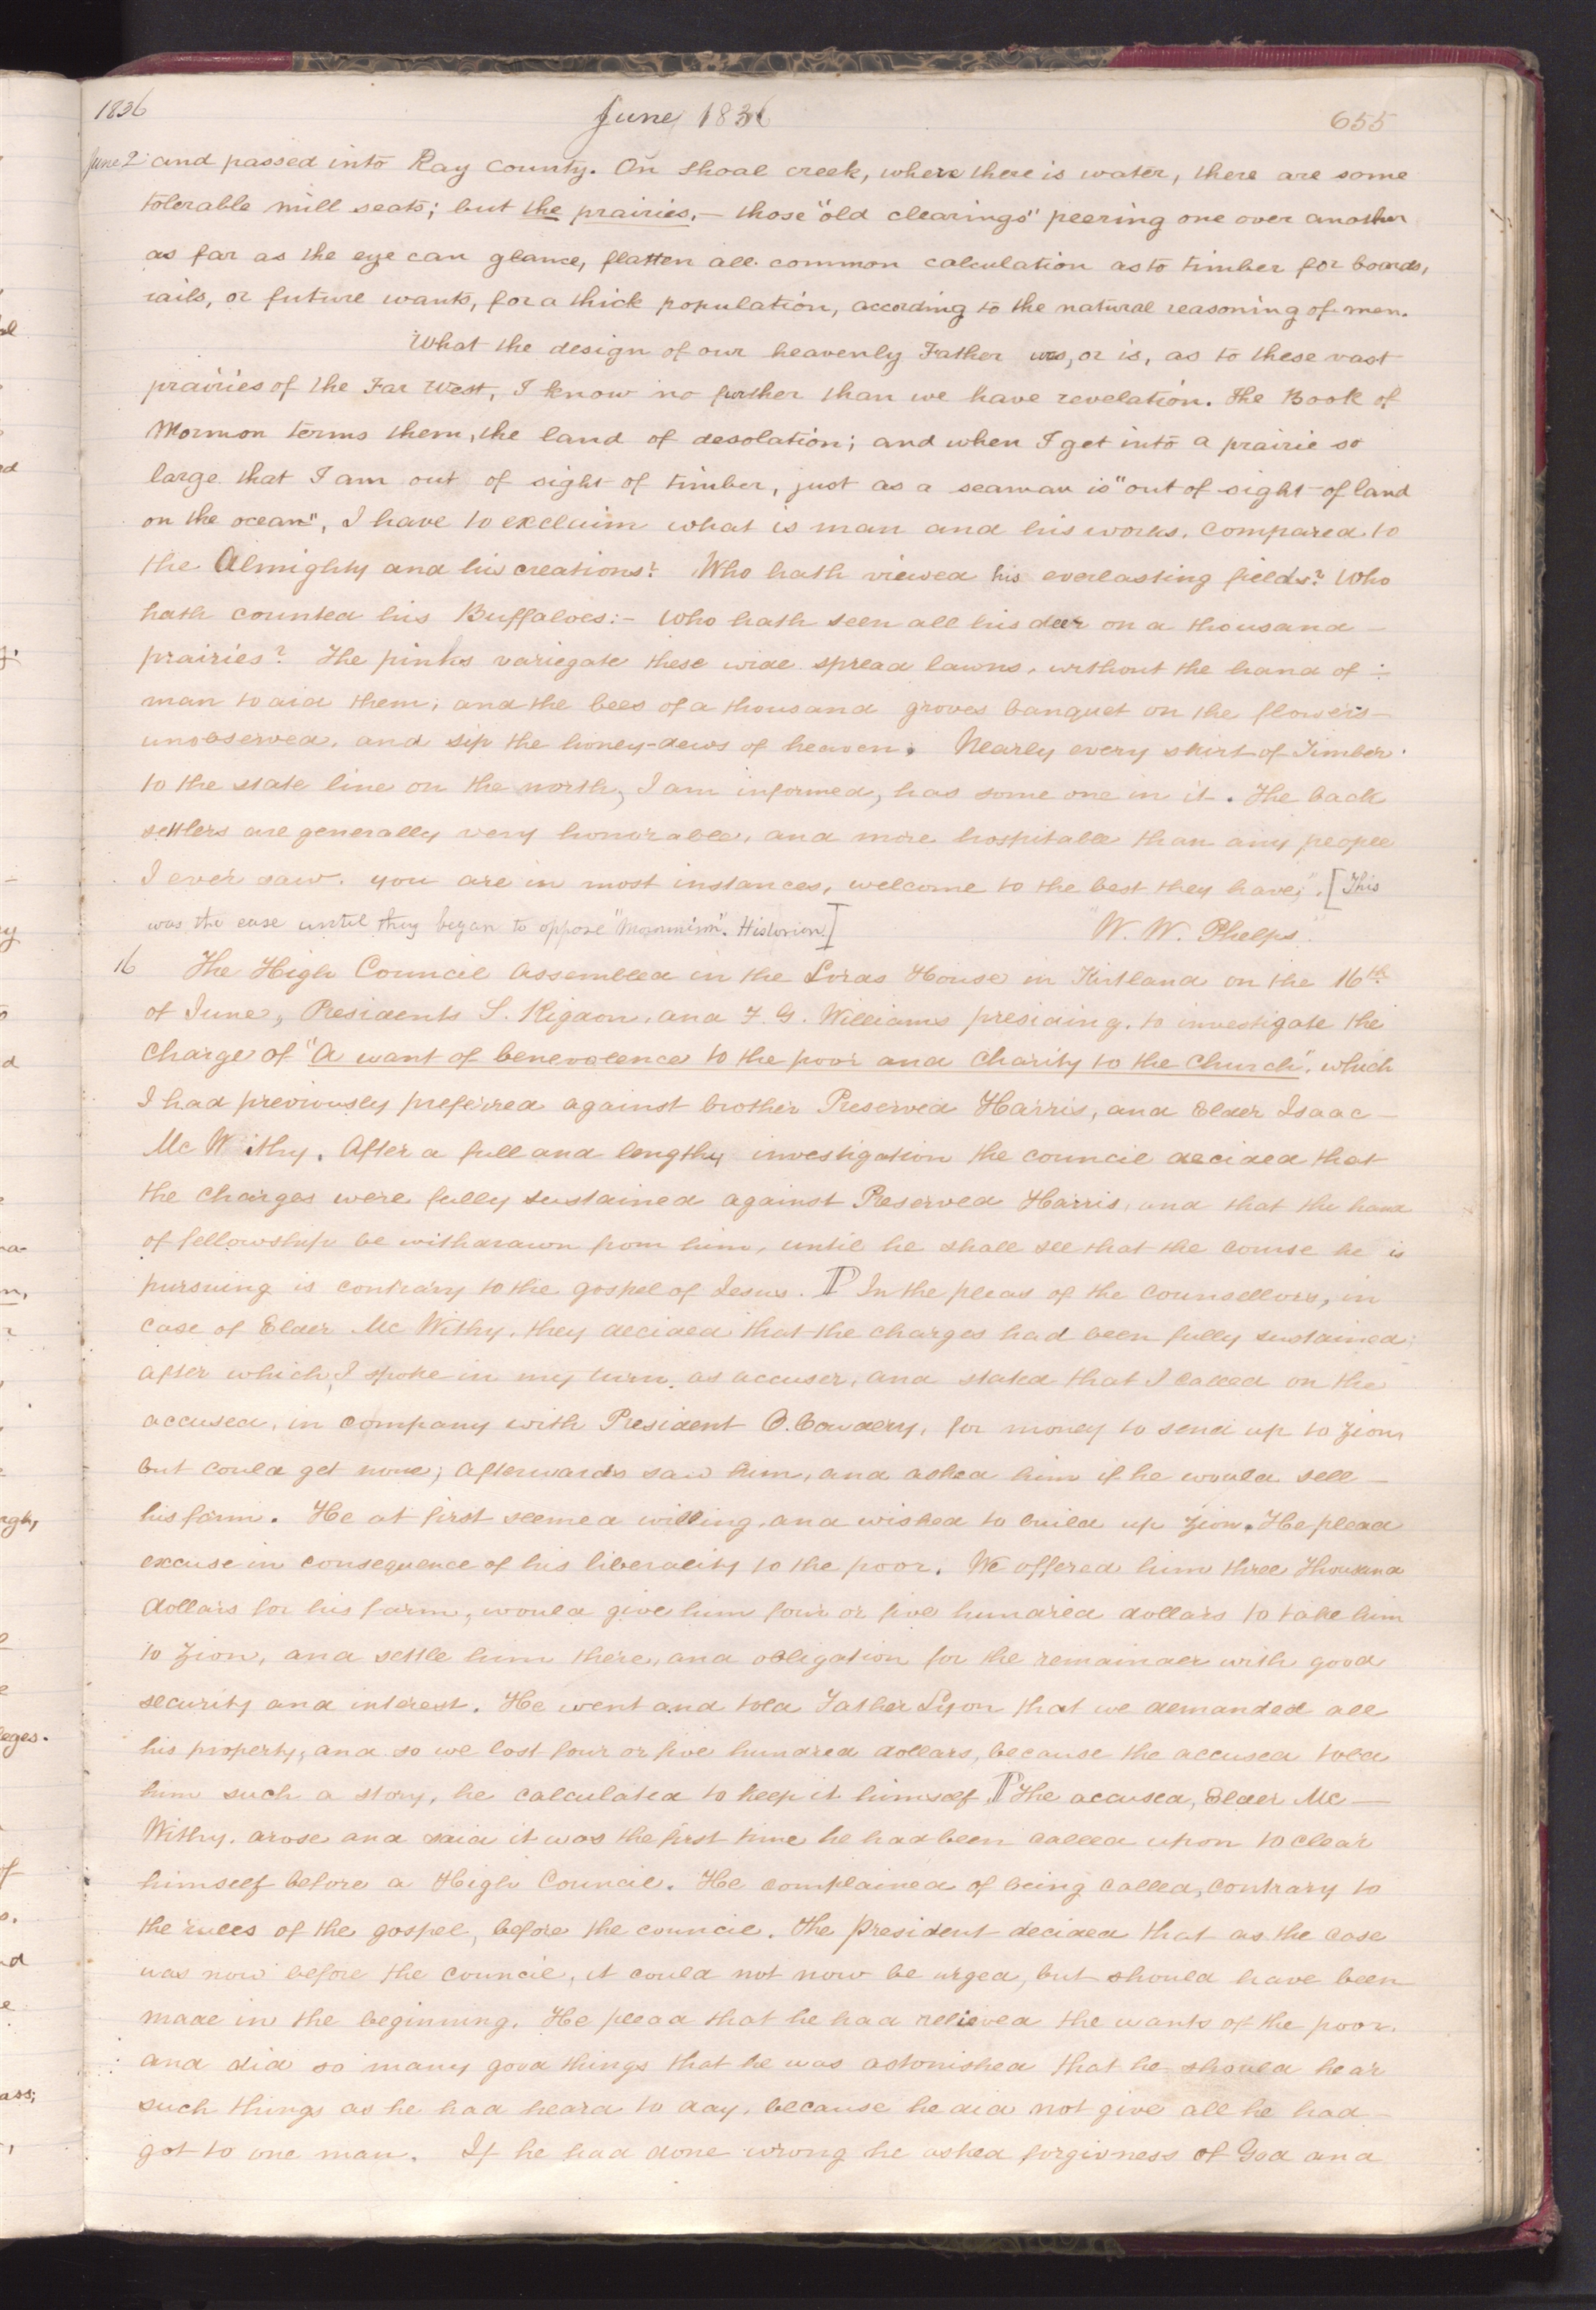 1836
June 1836
655
June 2 and passed into Ray county. On Shoal creek, where there is water, there are some
tolerable mill seats; but the prairies,— those "old clearings" peering one over another
as far as the eye can glance, flatten all common calculation as to timber for boards,
rails, or future wants, for a thick population, according to the natural reasoning of men.
What the design of our heavenly Father was, or is, as to these vast
prairies of the Far West, I know no further than we have revelation. The Book of
Mormon terms them, the land of desolation; and when I get into a prairie so
large that I am out of sight of timber, just as a seaman is "out of sight of land
on the ocean", I have to exclaim what is man and his works, compared to
the Almighty and his creations? Who hath viewed his everlasting fields? Who
hath counted his Buffaloes:- Who hath seen all his deer on a thousand
prairies? The pinks variegate these wide spread lawns, without the hand of
man to aid them; and the bees of a thousand groves banquet on the flowers
unobserved, and sip the honey-dews of heaven. Nearly every skirt of Timber
to the state line on the north, I am informed, has some one in it. The back
settlers are generally very honorable, and more hospitable than any people
I ever saw. you are in most instances, welcome to the best they have;". [This
was the case until they began to oppose "Mormonism". Historian.]
"W. W. Phelps."
16 The High Council assembled in the Lords House in Kirtland on the 16th.
of June, Presidents S. Rigdon, and F. G. Williams presiding, to investigate the
charge of "A want of benevolence to the poor and charity to the Church", which
I had previously preferred against brother Preserved Harris, and Elder Isaac
Mc Withy. After a full and lengthy investigation the council decided that
the charges were fully sustained against Preserved Harris, and that the hand
of fellowship be withdrawn from him, until he shall see that the course he is
pursuing is contrary to the gospel of Jesus. ¶ In the pleas of the Counsellors, in
case of Elder Mc Withy, they decided that the charges had been fully sustained;
after which, I spoke in my turn as accuser, and stated that I called on the
accused, in company with President O. Cowdery, for money to send up to Zion
but could get none; afterwards saw him, and asked him if he would sell
his farm. He at first seemed willing, and wished to build up Zion. He plead
excuse in consequence of his liberality to the poor. We offered him three thousand
dollars for his farm, would give him four or five hundred dollars to take him
to Zion, and settle him there, and obligation for the remainder with good
security and interest. He went and told Father Lyon that we demanded all
his property, and so we lost four or five hundred dollars, because the accused told
him such a story, he calculated to keep it himself. ¶ The accused, Elder Mc
Withy, arose and said it was the first time he had been called upon to clear
himself before a High Council. He complained of being called, contrary to
the rules of the gospel, before the council. The president decided that as the case
was now before the council, it could not now be urged, but should have been
made in the beginning. He plead that he had relieved the wants of the poor,
and did so many good things that he was astonished that he should hear
such things as he had heard to day, because he did not give all he had
got to one man. If he had done wrong he asked forgivness of God and